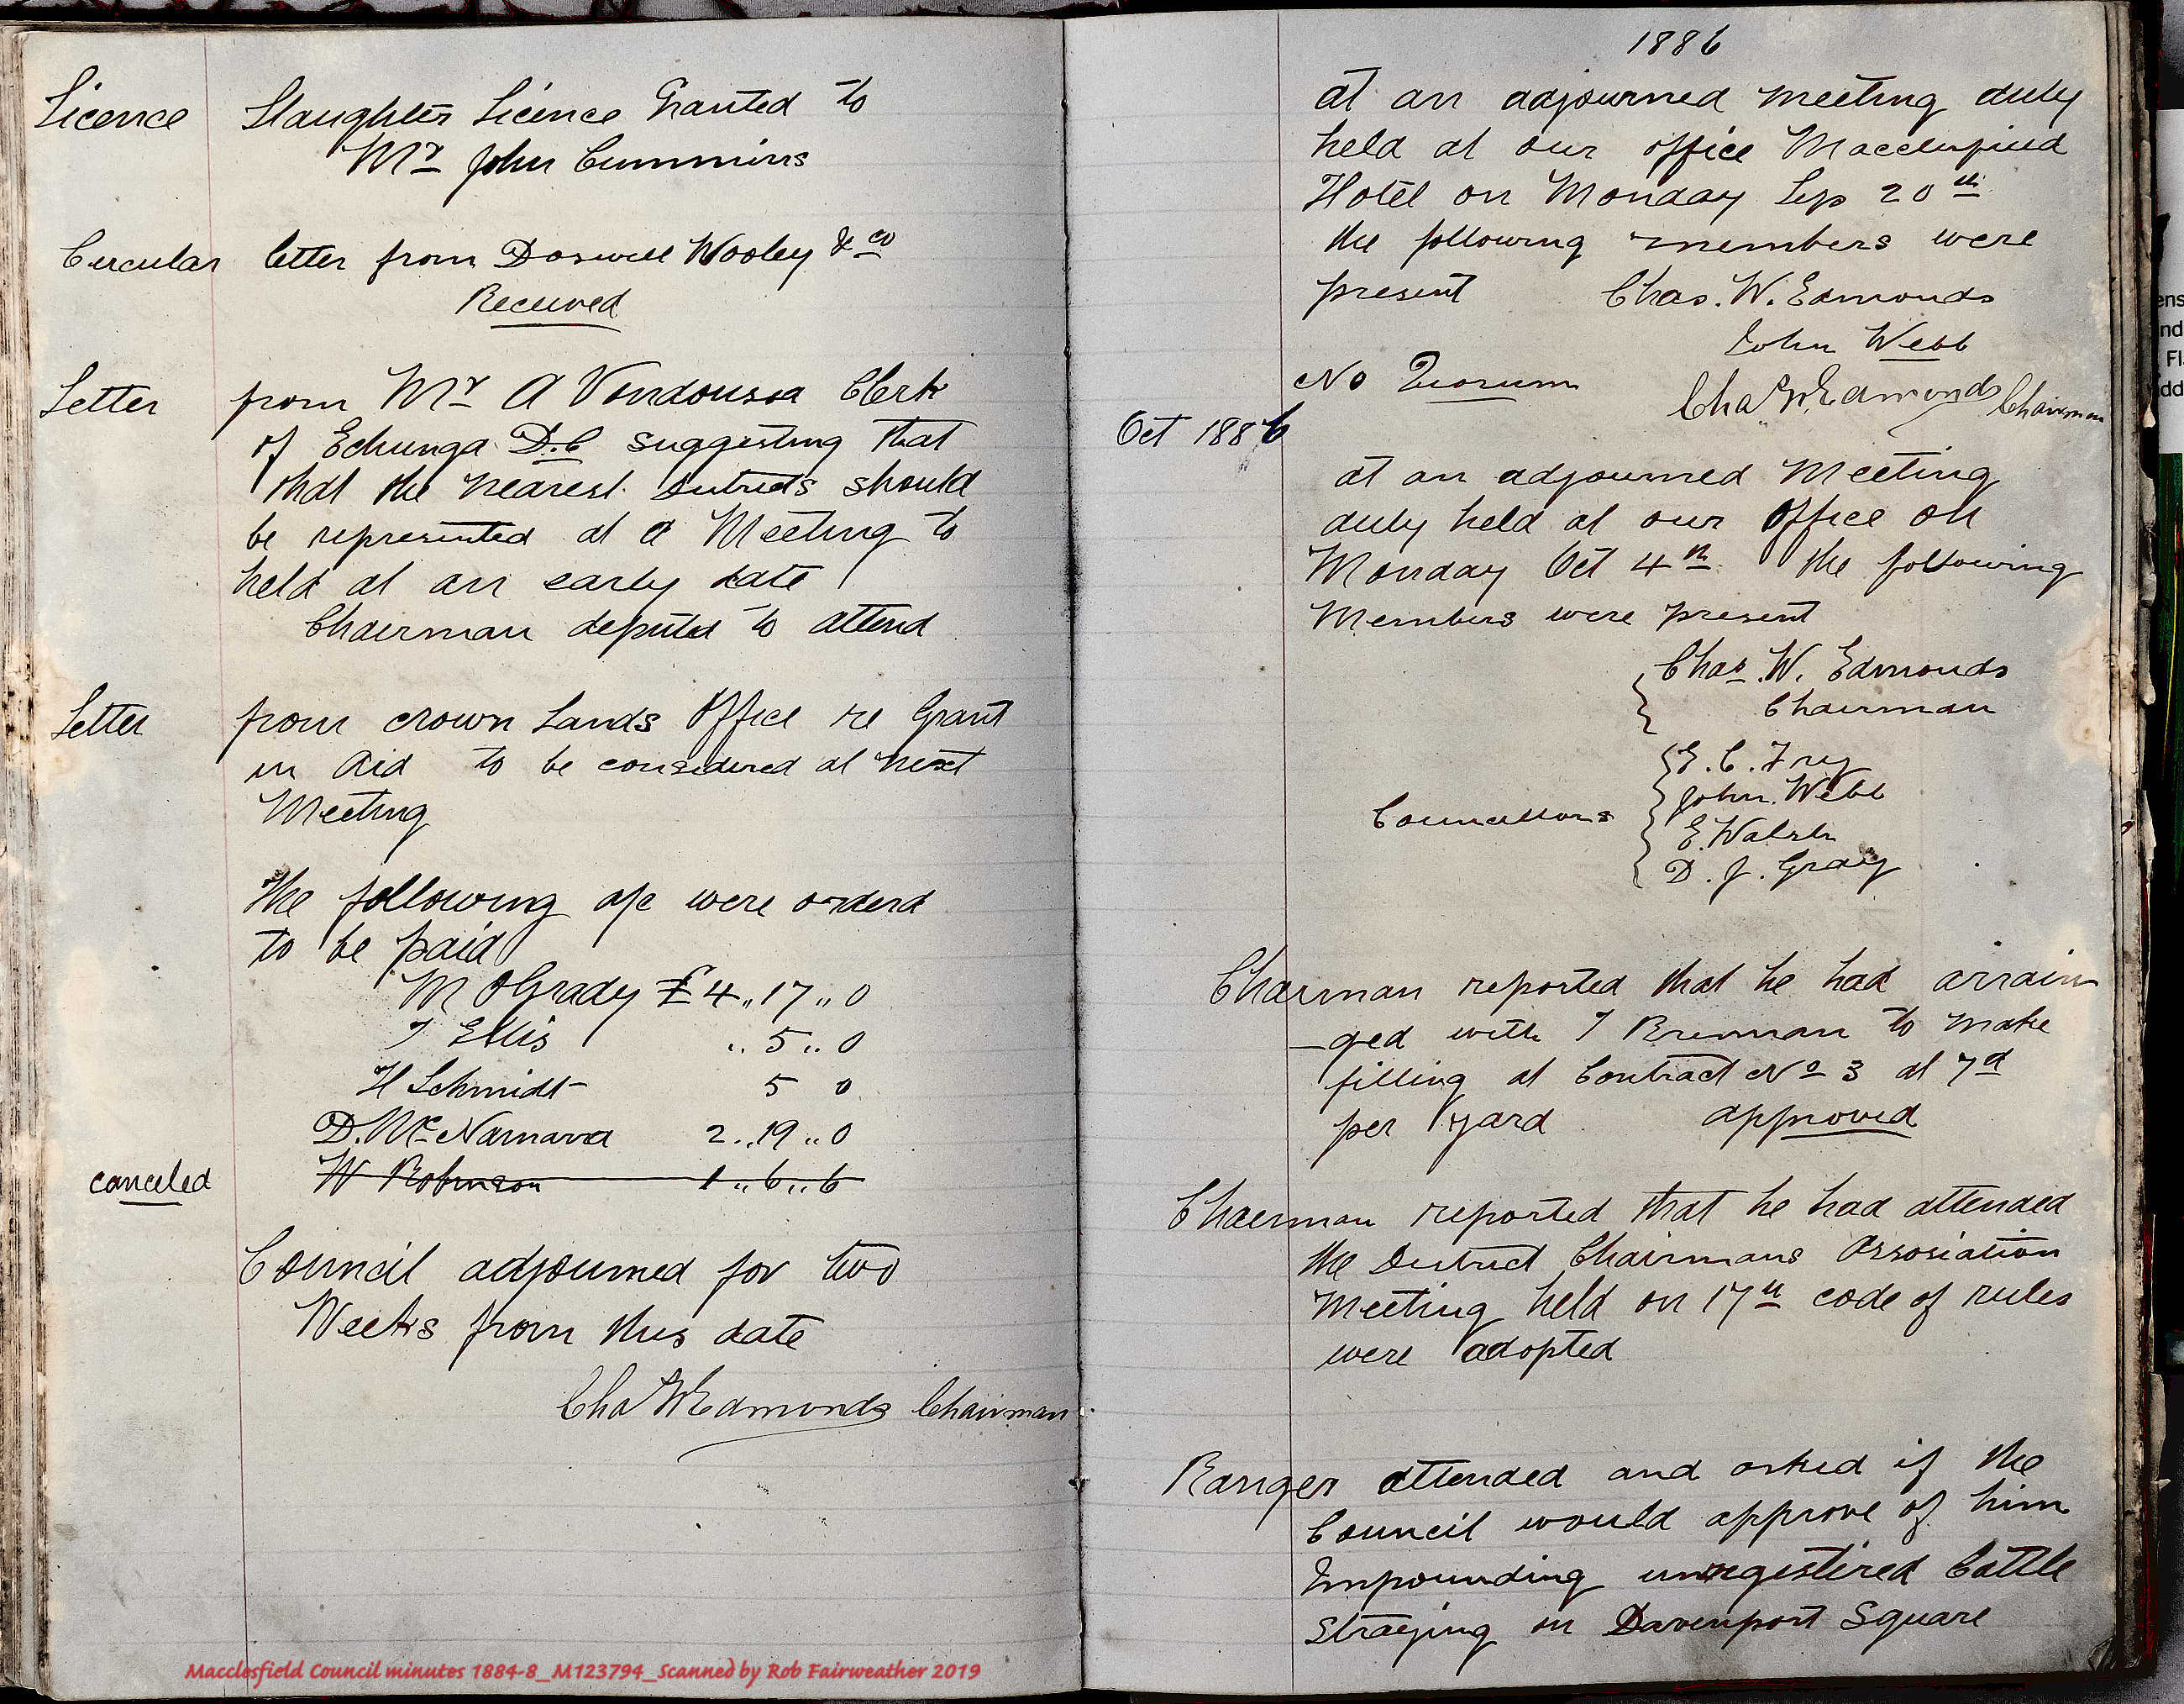 Licence Slaughter Licence Granted to
Mr John Cummins
Circular letter from Doswell Wooley & co
Received
Letter from Mr A Vondousa Clerk
of Echunga D.C suggesting that
that the nearest Districts should
be represented at a Meeting to
held at an early date
Chairman deputed to attend
Letter from crown Lands Office re Grant
in Aid to be considered at next
Meeting
The following a/c were orderd
to be paid
M OGrady £4 ,, 17 ,, 0
T Ellis ,, 5 ,, 0
H Schmidt 5 0
D. McNamara 2 ,, 19 ,, 0
canceled W Robinson 1 ,, 6 ,, 6
Council adjourned for two
Weeks from this date
Chas W Edmonds Chairman
1886
at an adjourned meeting duly
held at our office Macclesfield
Hotel on Monday Sep 20th
the following members were
present Chas. W. Edmonds
John Webb
No Quorum
Chas W Edmonds Chairman
Oct 1886
at an adjourned Meeting
duly held at our Office on
Monday Oct 4th the following
Members were present
Chas. W. Edmonds
Chairman
E. C. Fry
John Webb
Councillors
E. Walsh
D. J. Gray
Chairman reported that he had arrain
-ged with T Brennan to make
filling at Contract No 3 at 7d
per yard approved
Chairman reported that he had attended
the District Chairmans Assosiation
Meeting held on 17th code of rules
were adopted
Ranger attended and asked if the
Council would approve of him
Impounding unregistired Cattle
straying on Davenport Square
Macclesfield Council minutes 1884-8_M123794_Scanned by Rob Fairweather 2019